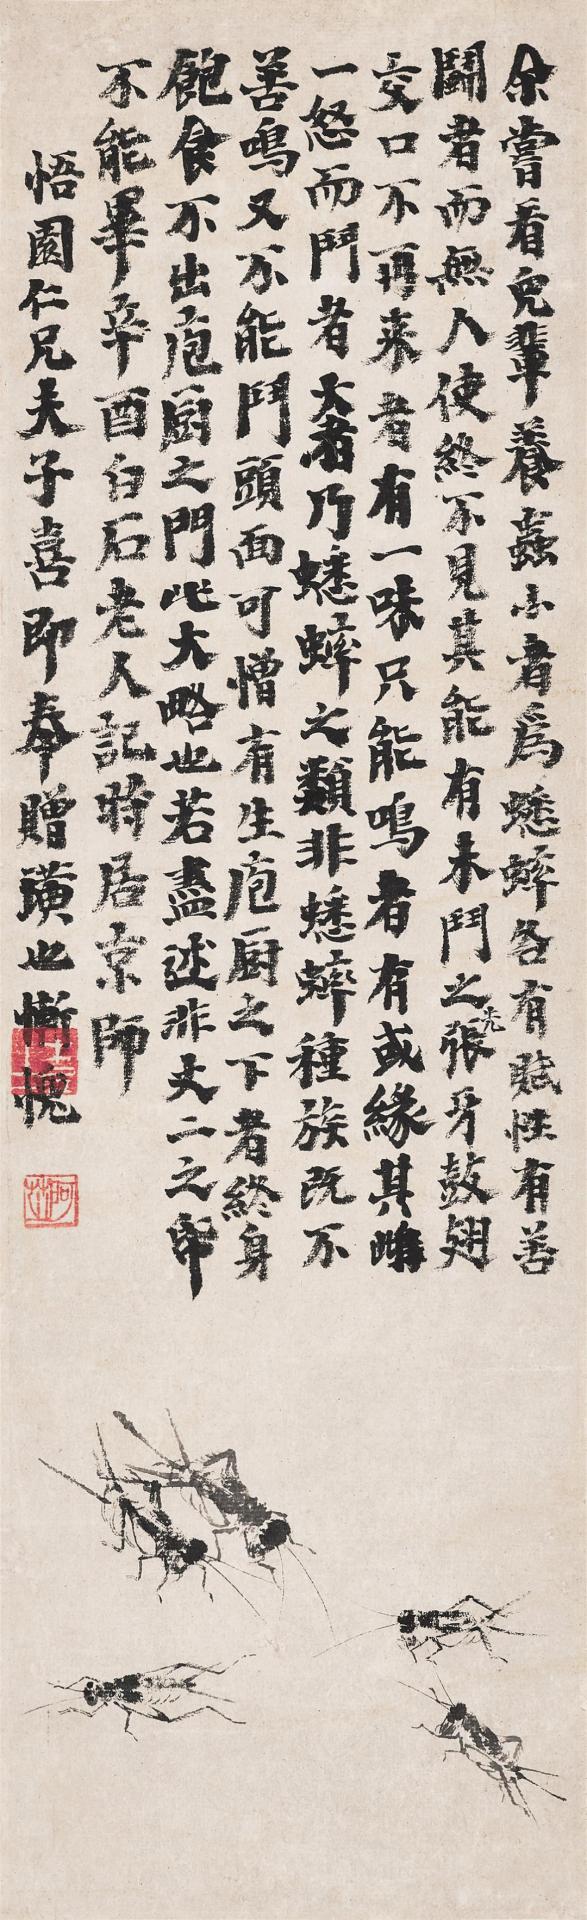 余嘗看兒輩養蟲小者爲蟋蟀各有賦性有善
鬭者而無人使終不見其能有未鬥之先張牙鼓翅
交口不再来者有一味只能鳴者有或緣其雌
一怒而鬥者大者乃蟋蟀之類非蟋蟀種族既不
善鳴又不能鬥頭面可憎有生庖厨之下者終身
飽食不出庖厨之門此大略也若盡述非丈二之帋
不能畢辛酉白石老人記時居京師
悟園仁兄夫子喜即奉贈璜也慚愧